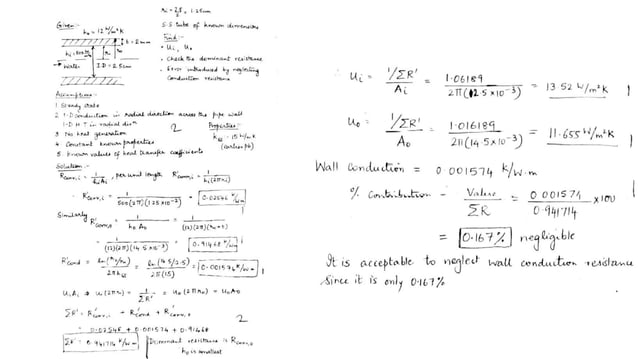 ri = 2.5/2, 1.25cm
Given:-
S.S tube of known dimensions
h₀ = 12 W/m²K
t = 2mm
Find:-
• Ui, U₀
• Check the dominant resistance
• Error introduced by neglecting
conduction resistance
Water
I.D = 2.5cm
Assumptions:-
1 Steady state
2 1-D conduction in radial direction across the pipe wall
1-D H.T in radial dirⁿ
3 No heat generation
4 Constant known properties
5 Known values of heat transfer coefficients
2
Properties:-
Kss = 15 W/mK
Solution:-
Rconv,i = 1/hiAi, per unit length R'conv,i = 1/hi(2πri)
∴ R'conv,i = 1/500(2π)(1.25×10⁻²) = 0.02546 K/Wm
Similarly R'conv,o = 1/h₀A₀ = 1/(12)(2π)(r₀+t)
= 1/(12)(2π)(14.5×10⁻³) = 0.91468 K/Wm
R'cond = ln(r₀/ri)/2πkss = ln(14.5/12.5)/2π(15) = 0.001574 K/Wm
UiAi ⇒ Ui(2πri) = 1/ΣR' = U₀(2πr₀) = U₀A₀
ΣR' = R'conv,i + R'cond + R'conv,o
= 0.02546 + 0.001574 + 0.91468
2
ΣR' = 0.941714 K/Wm
Dominant resistance is Rconv,o
h₀ is smallest
∴ Ui = 1/ΣR' / Ai = 1.06189 / 2π(12.5×10⁻³) = 13.52 W/m²K
U₀ = 1/ΣR' / A₀ = 1.016189 / 2π(14.5×10⁻³) = 11.655 W/m²K
Wall conduction = 0.001574 K/W·m
% Contribution = Value/ΣR = 0.001574/0.941714 ×100
= 0.167% negligible
It is acceptable to neglect wall conduction resistance
since it is only 0.167%